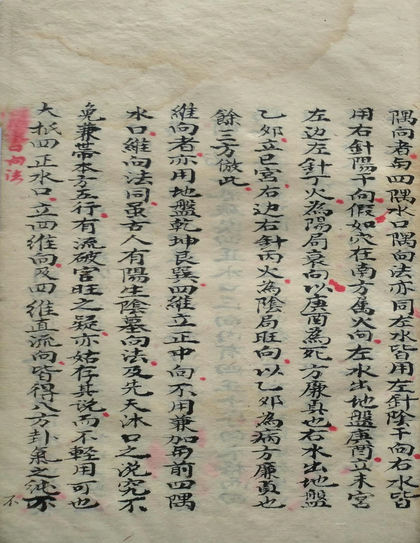 隅向者與四隅水口隅向法亦同左水皆用左針陰干向右水皆
用右針陽干向假如穴在南方属火向左水出地盤庚酉立未宮
左边左針丁火為陽局衰向以庚酉為死方廉真也右水出地盤
乙卯立巳宮右边右針丙火為陰局旺向以乙卯為病方廉真也
餘三方倣此
維向者亦用地盤乾坤艮巽四維立正中向不用兼加與前四隅
水口維向法同虽古人有陽生陰墓向法及先天沐口之説究不
免兼帶本方五行有流破官旺之疑亦姑存其説而不輕用可也
大抵四正水口立西維向及四維直流向皆得八方卦氣之純不
向法
不